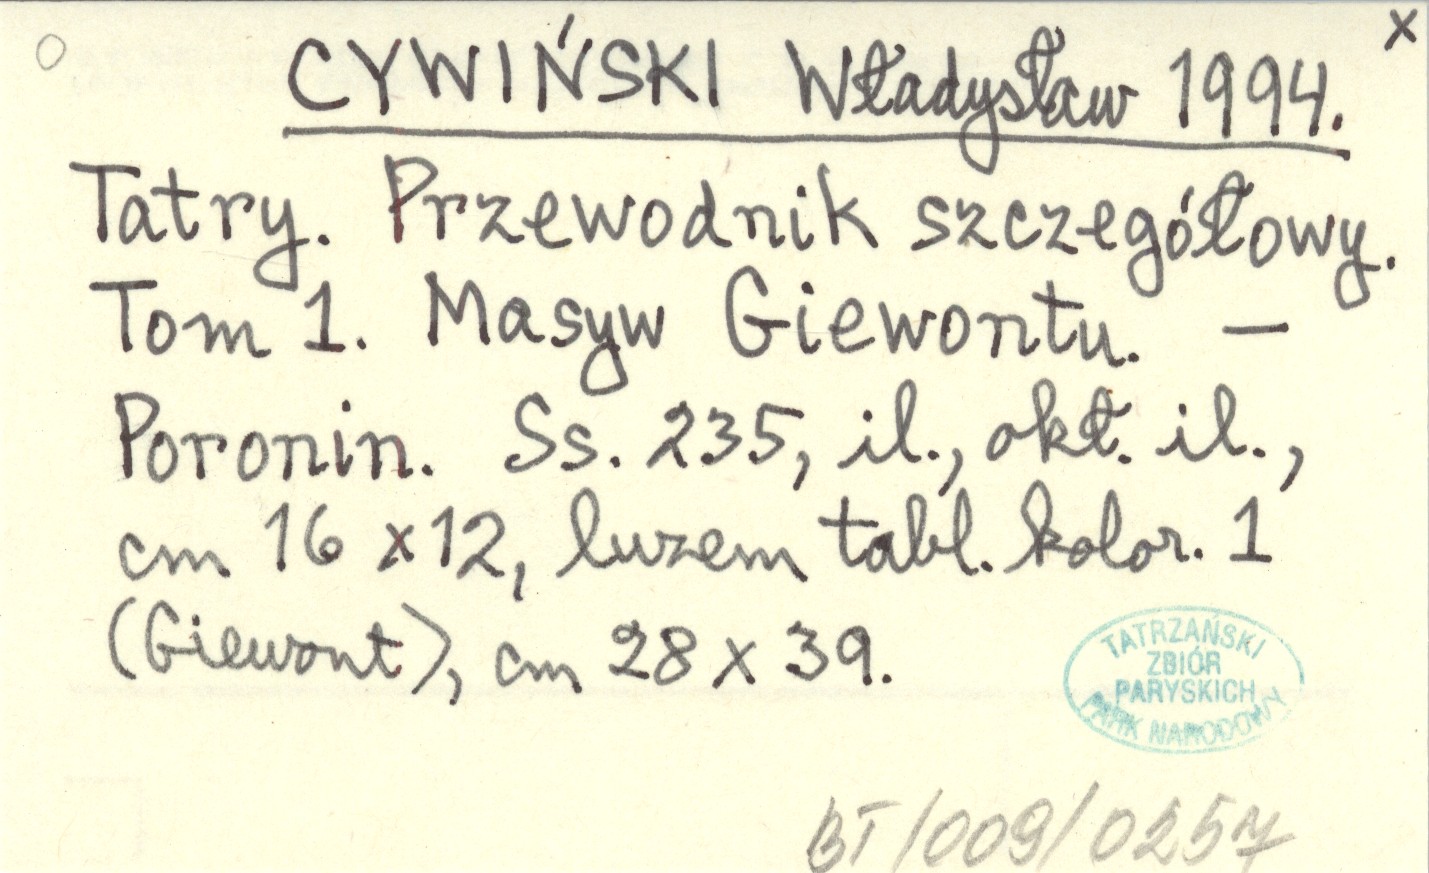 x
CYWIŃSKI Władysław 1994.
Tatry. Przewodnik szczegółowy.
Tom 1. Masyw Giewontu. —
Poronin. Ss. 235, il., okł. il.,
cm 16 x 12, luzem tabl. kolor. 1
(Giewont), cm 28 x 39.
TATRZAŃSKI
ZBIÓR
PARYSKICH
PARK NARODOWY
BT/009/0257